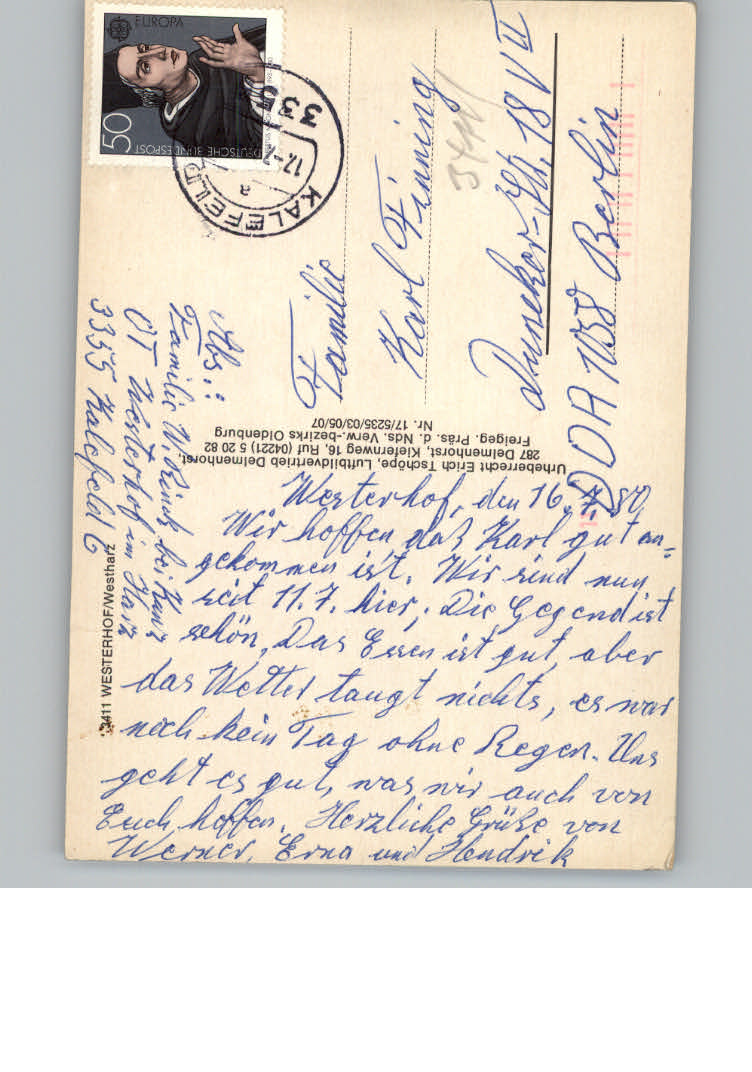 EUROPA
50
DEUTSCHE BUNDESPOST
17.
a
KALEFELD
Familie
Karl Finning
Duncker-Str. 18 V II
DDR 1058 Berlin
Abs.:
Familie W. Rinck bei Kunz
OT Westerhof im Harz
3355 Kalefeld 6
Urheberrecht Erich Tschöpe, Luftbildvertrieb Delmenhorst.
287 Delmenhorst, Kiefernweg 16, Ruf (04221) 5 20 82
Freigeg. Präs. d. Nds. Verw.-bezirks Oldenburg
Nr. 17/5235/03/05/07
3411 WESTERHOF/Westharz
Westerhof, den 16.7.80
Wir hoffen, daß Karl gut an=
gekommen ist. Wir sind nun
seit 11.7. hier, Die Gegend ist
schön, Das Essen ist gut, aber
das Wetter taugt nichts, es war
noch kein Tag ohne Regen. Uns
geht es gut, was wir auch von
Euch hoffen. Herzliche Grüße von
Werner, Erna und Hendrik